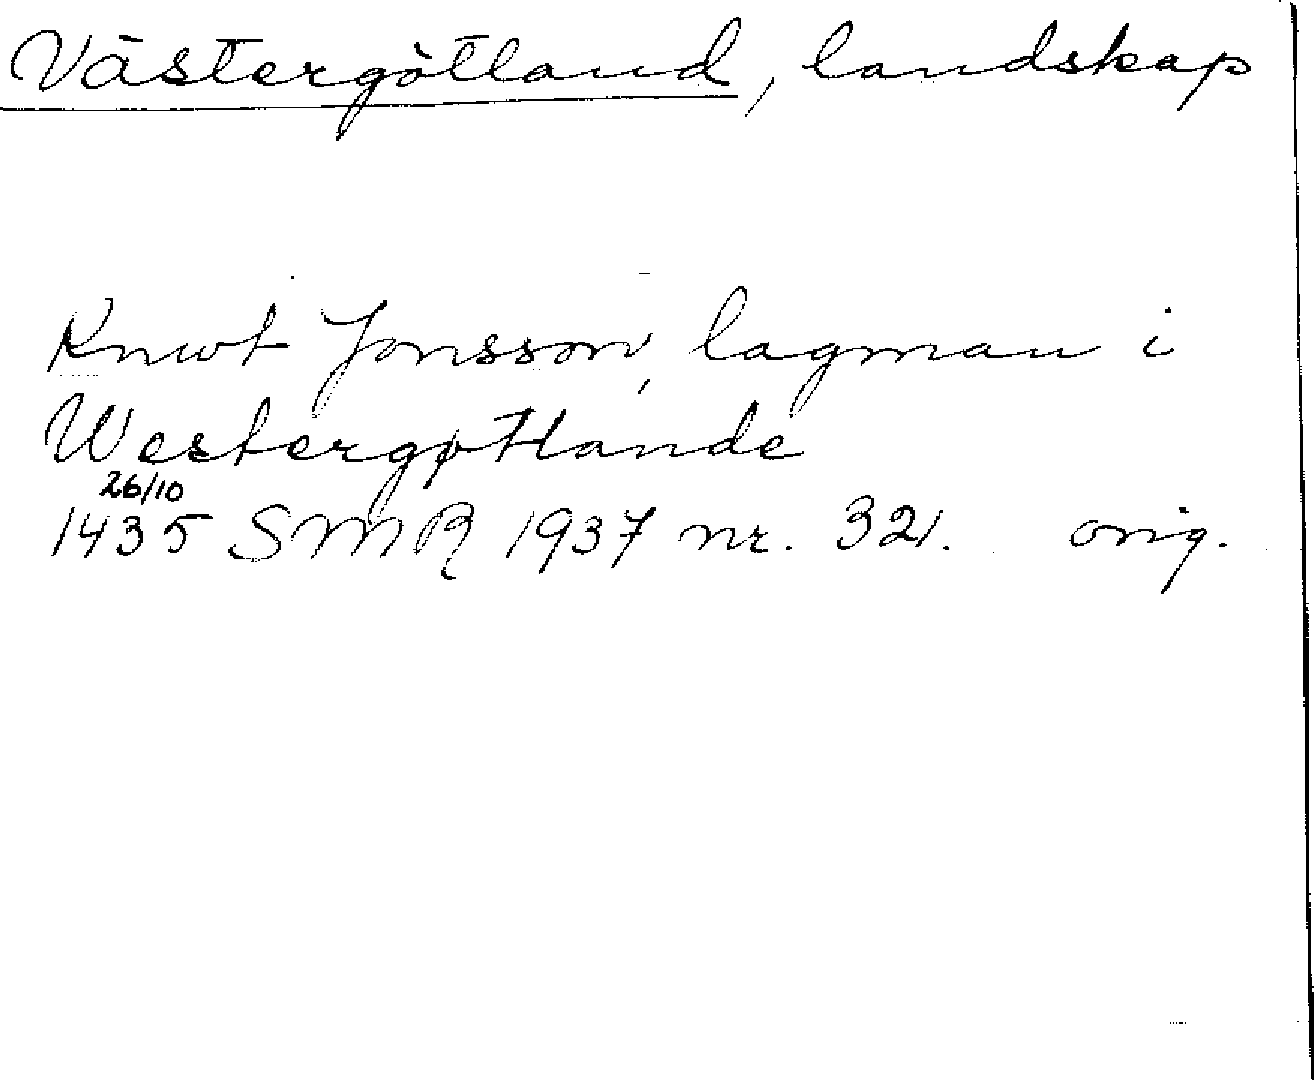 Västergötland, landskap
Knwt Jonsson, lagman i
Westergøtlande
26/10
1435 SMR 1937 nr. 321. orig.